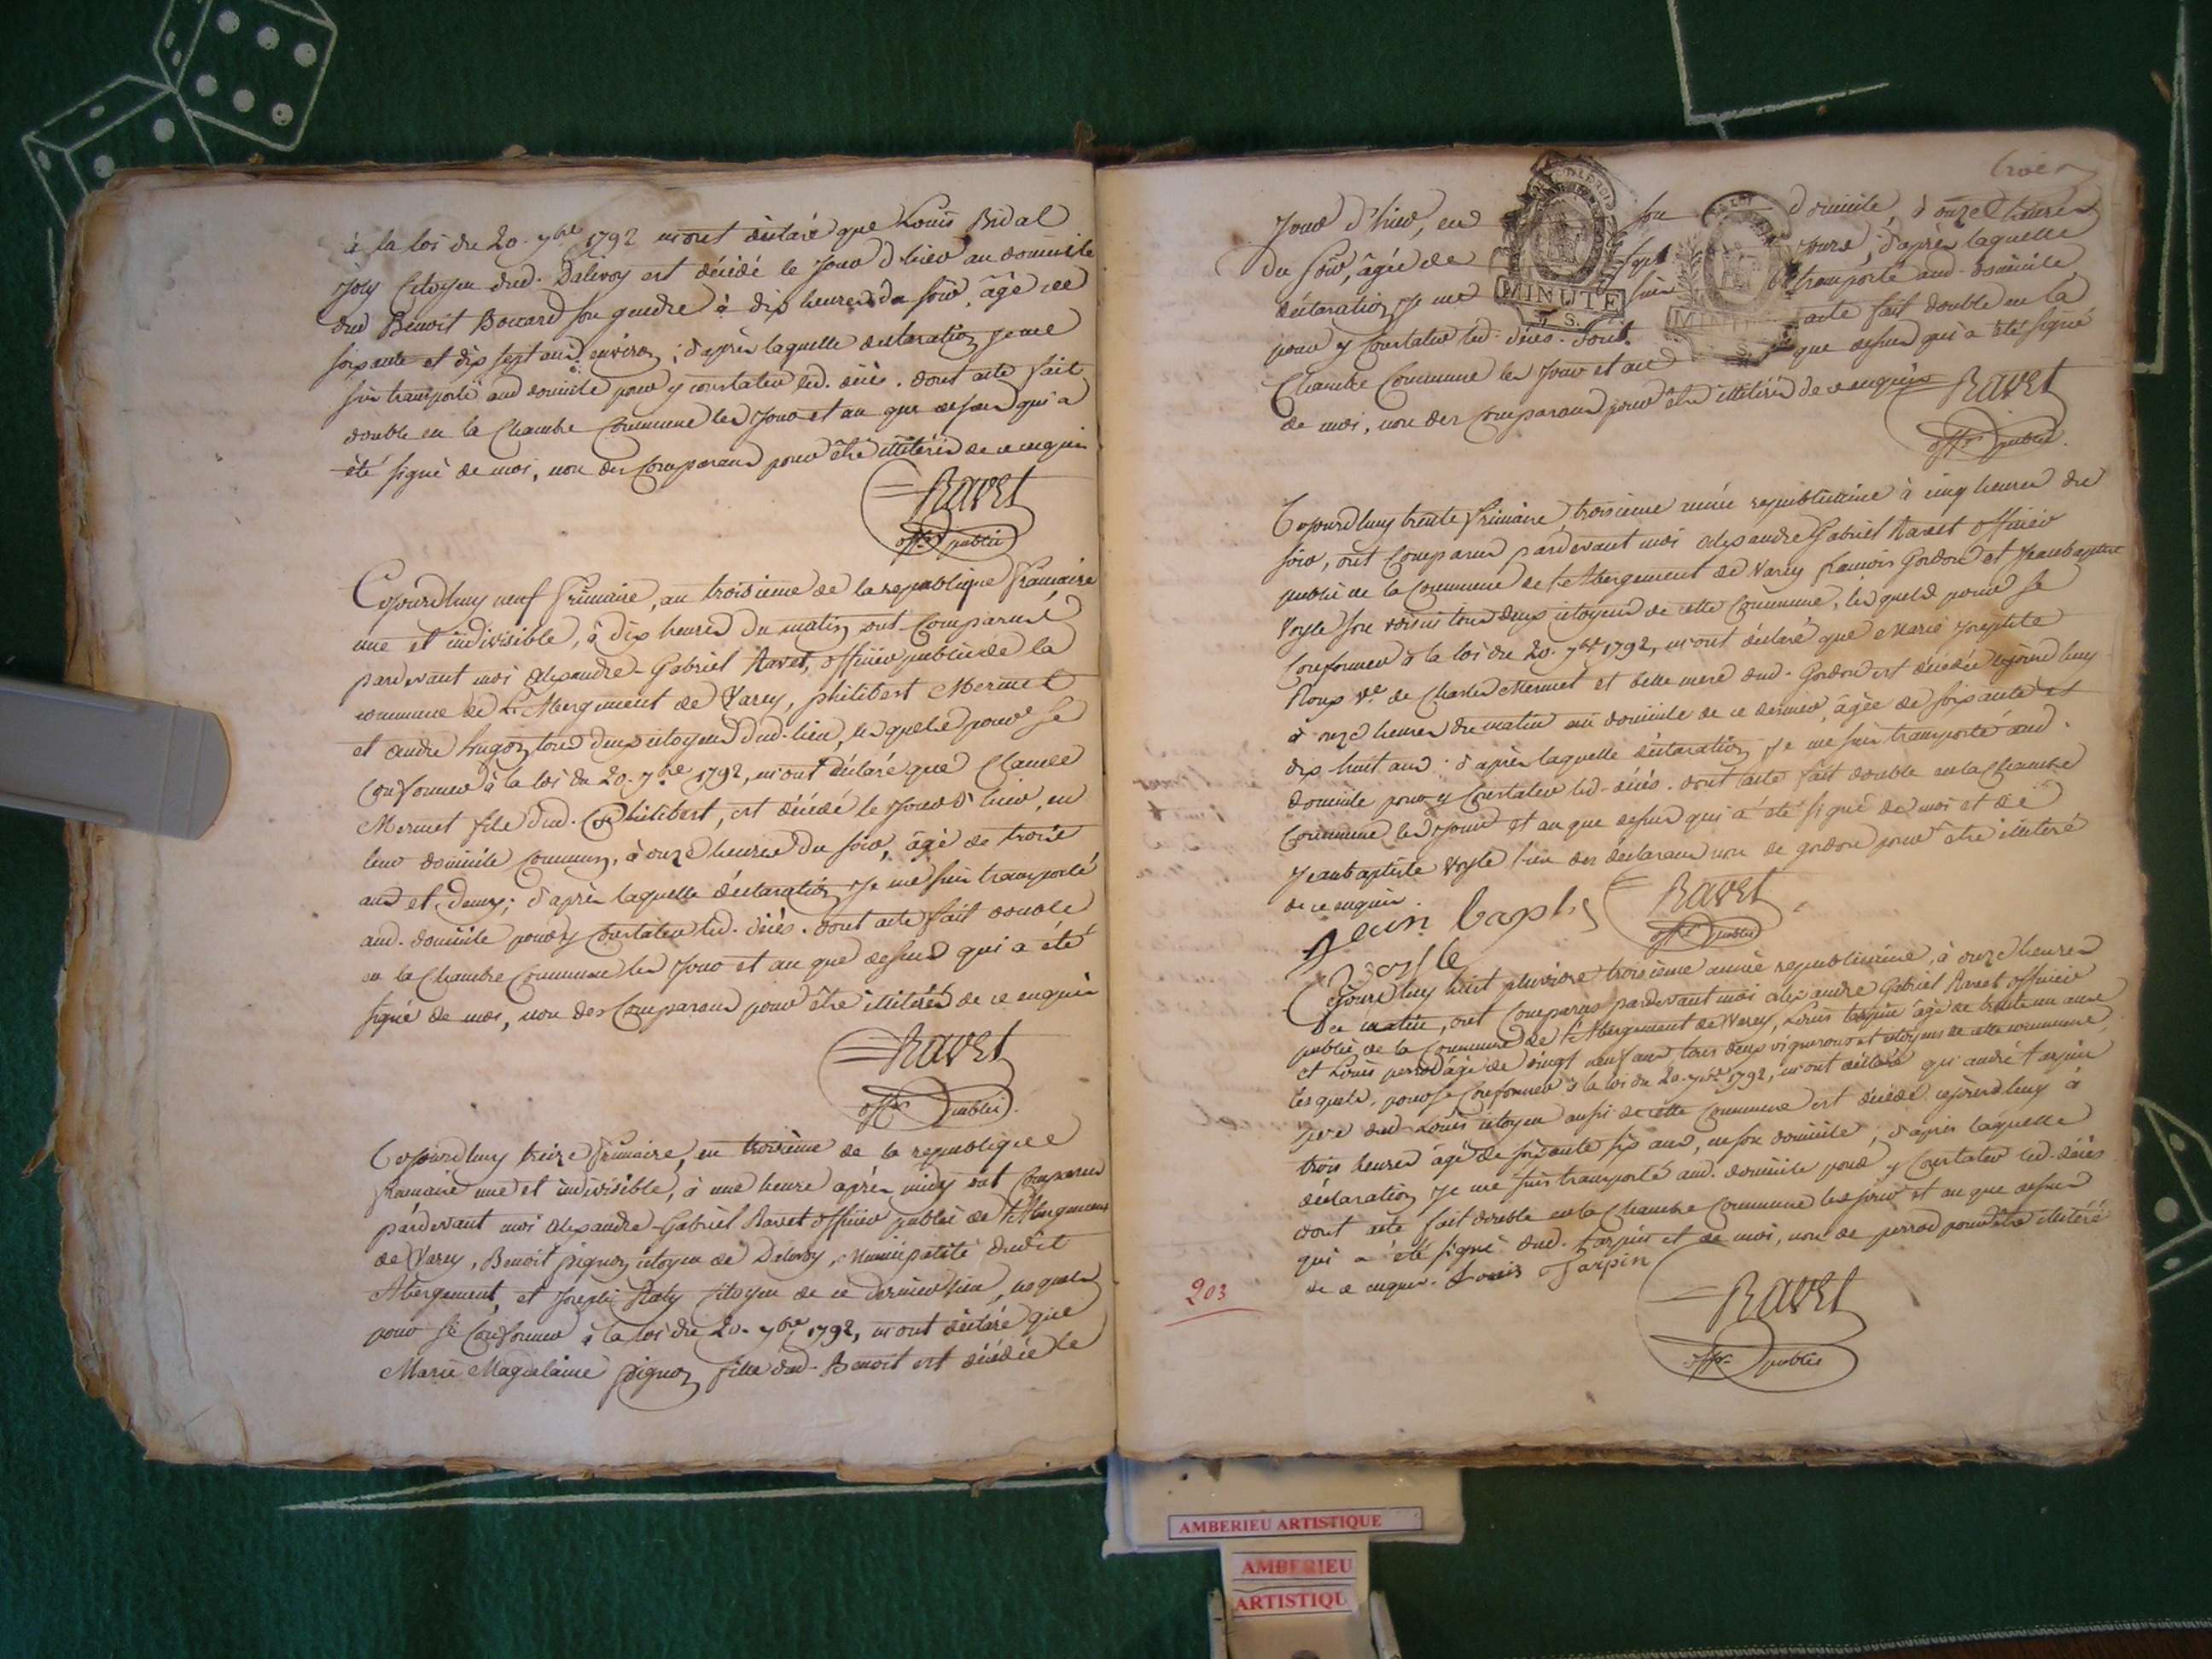 à la loi du 20. 7bre 1792 m'ont déclaré que Louis Bidal
Joly Citoyen dud. Dalivoy est décédé le Jour d'hier au domicile
dud Benoit Bocard son gendre à dix heures du soir, âgé de
soixante et dix sept ans environ ; d'après laquelle declaration je me
suis transporté aud domicile pour y constater led. décès. dont acte fait
double en la Chambre Commune les Jour et an que dessus qui a
été signé de moi, non des Comparans pour être illitérés de ce enquis
Ravet
offer public
Cejourdhuy neuf frimaire, an troisieme de la republique francaise
une et indivisible, à dix heures du matin ont Comparus
pardevant moi Alexandre-Gabriel Ravet, officier public de la
commune de L'Abergement de Varey, philibert Mermet
et andre hugon tous deux citoyens dud. lieu, lesquels pour se
Conformer à la loi du 20. 7bre 1792, m'ont déclaré que Claude
Mermet fils dud. Philibert, est décédé le Jour d'hier, en
leur domicile Commun, à onze heures du soir, âgé de trois
ans et demy ; d'après laquelle déclaration Je me suis transporté
aud. domicile pour y Constater led. décès. dont acte fait double
en la Chambre Commune les Jour et an que dessus qui a été
signé de moi, non des Comparans pour être illitérés de ce enquis
Ravet
offer public
Cejourdhuy treize frimaire, an troisième de la republique
francaise une et indivisible, à une heure après midy ont Comparus
pardevant moi Alexandre-Gabriel Ravet officier public de L'Abergement
de Varey, Benoit pignon citoyen de Dalivoy, Municipalité dudit
Abergement, et Joseph Raty Citoyen de ce dernier lieu, lesquels
pour se Conformer à la loi du 20. 7bre 1792, m'ont déclaré que
Marie Magdelaine pignon fille dud. Benoit est décédée le
Jour d'hier, en son domicile, à onze heures
du soir, âgée de sept jours ; d'après laquelle
déclaration Je me suis transporté aud. domicile
MINUTE
pour y Constater led. décès. Dont acte fait double en la
Chambre Commune les Jour et an que dessus qui a été signé
de moi, non des Comparans pour être illitérés de ce enquis
Ravet
offer public.
Cejourdhuy trente frimaire, troisieme année republicaine à cinq heures du
soir, ont Comparus pardevant moi Alexandre Gabriel Ravet officier
public de la Commune de L'Abergement de Varey francois Gordon et Jeanbaptiste
Voyle son voisin tous deux citoyens de cette Commune, lesquels pour se
Conformer à la loi du 20. 7bre 1792, m'ont déclaré que Marie Josephte
Roux Ve. de Charles Mermet et belle mere dud. Gordon est décédée cejourdhuy
à onze heures du matin au domicile de ce dernier, âgée de soixante et
dix huit ans : d'après laquelle déclaration, Je me suis transporté aud.
domicile pour y Constater led. décès. dont acte fait double en la Chambre
Commune les Jour et an que dessus qui a été signé de moi et de
Jeanbaptiste Voyle l'un des déclarans non de gordon pour être illitéré
de ce enquis.
Jean baptis
Voyle
Ravet
offer public
Cejourdhuy huit pluviose troisième année republicaine, à onze heures
du matin, ont Comparus pardevant moi Alexandre Gabriel Ravet officier
public de la Commune de L'Abergement de Varey, Louis tarpin âgé de trente un ans
et Louis perrod âgé de vingt neuf ans tous deux vignerons et citoyens de cette commune,
lesquels, pour se Conformer à la loi du 20. 7bre 1792, m'ont déclaré que andré tarpin
père dud. Louis citoyen aussi de cette Commune est décédé cejourdhuy à
trois heures âgé de soixante six ans, en son domicile ; d'après laquelle
déclaration Je me suis transporté aud. domicile pour y Constater led. décès
dont acte fait double en la Chambre Commune les jour et an que dessus
qui a été signé dud. tarpin et de moi, non de perrod pour être illitéré
de ce enquis. Louis Tarpin
203
Ravet
offer public
AMBERIEU ARTISTIQUE
AMBERIEU
ARTISTIQU